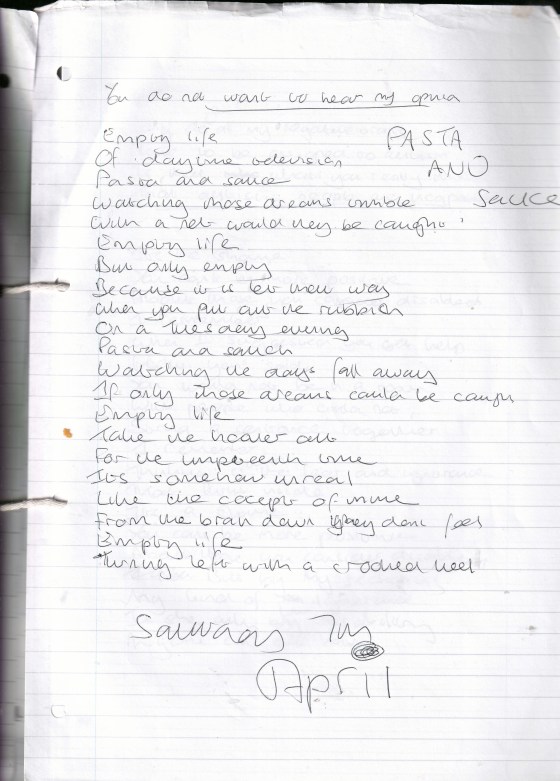 You do not want to hear my
Empty life
PASTA
AND
SAUCE
Of daytime television
Pasta and sauce
Watching those dreams
With a net would they be caught
Empty life
But only empty
Because it is that way
When you put out the rubbish
On a Tuesday evening
Pasta and
Watching the days fall away
If only those dreams could be
Empty life
Take the out
For the time
Its somehow unreal
Like the of mine
From the down they dont feel
Empty life
Turning left with a crooked
7th
April